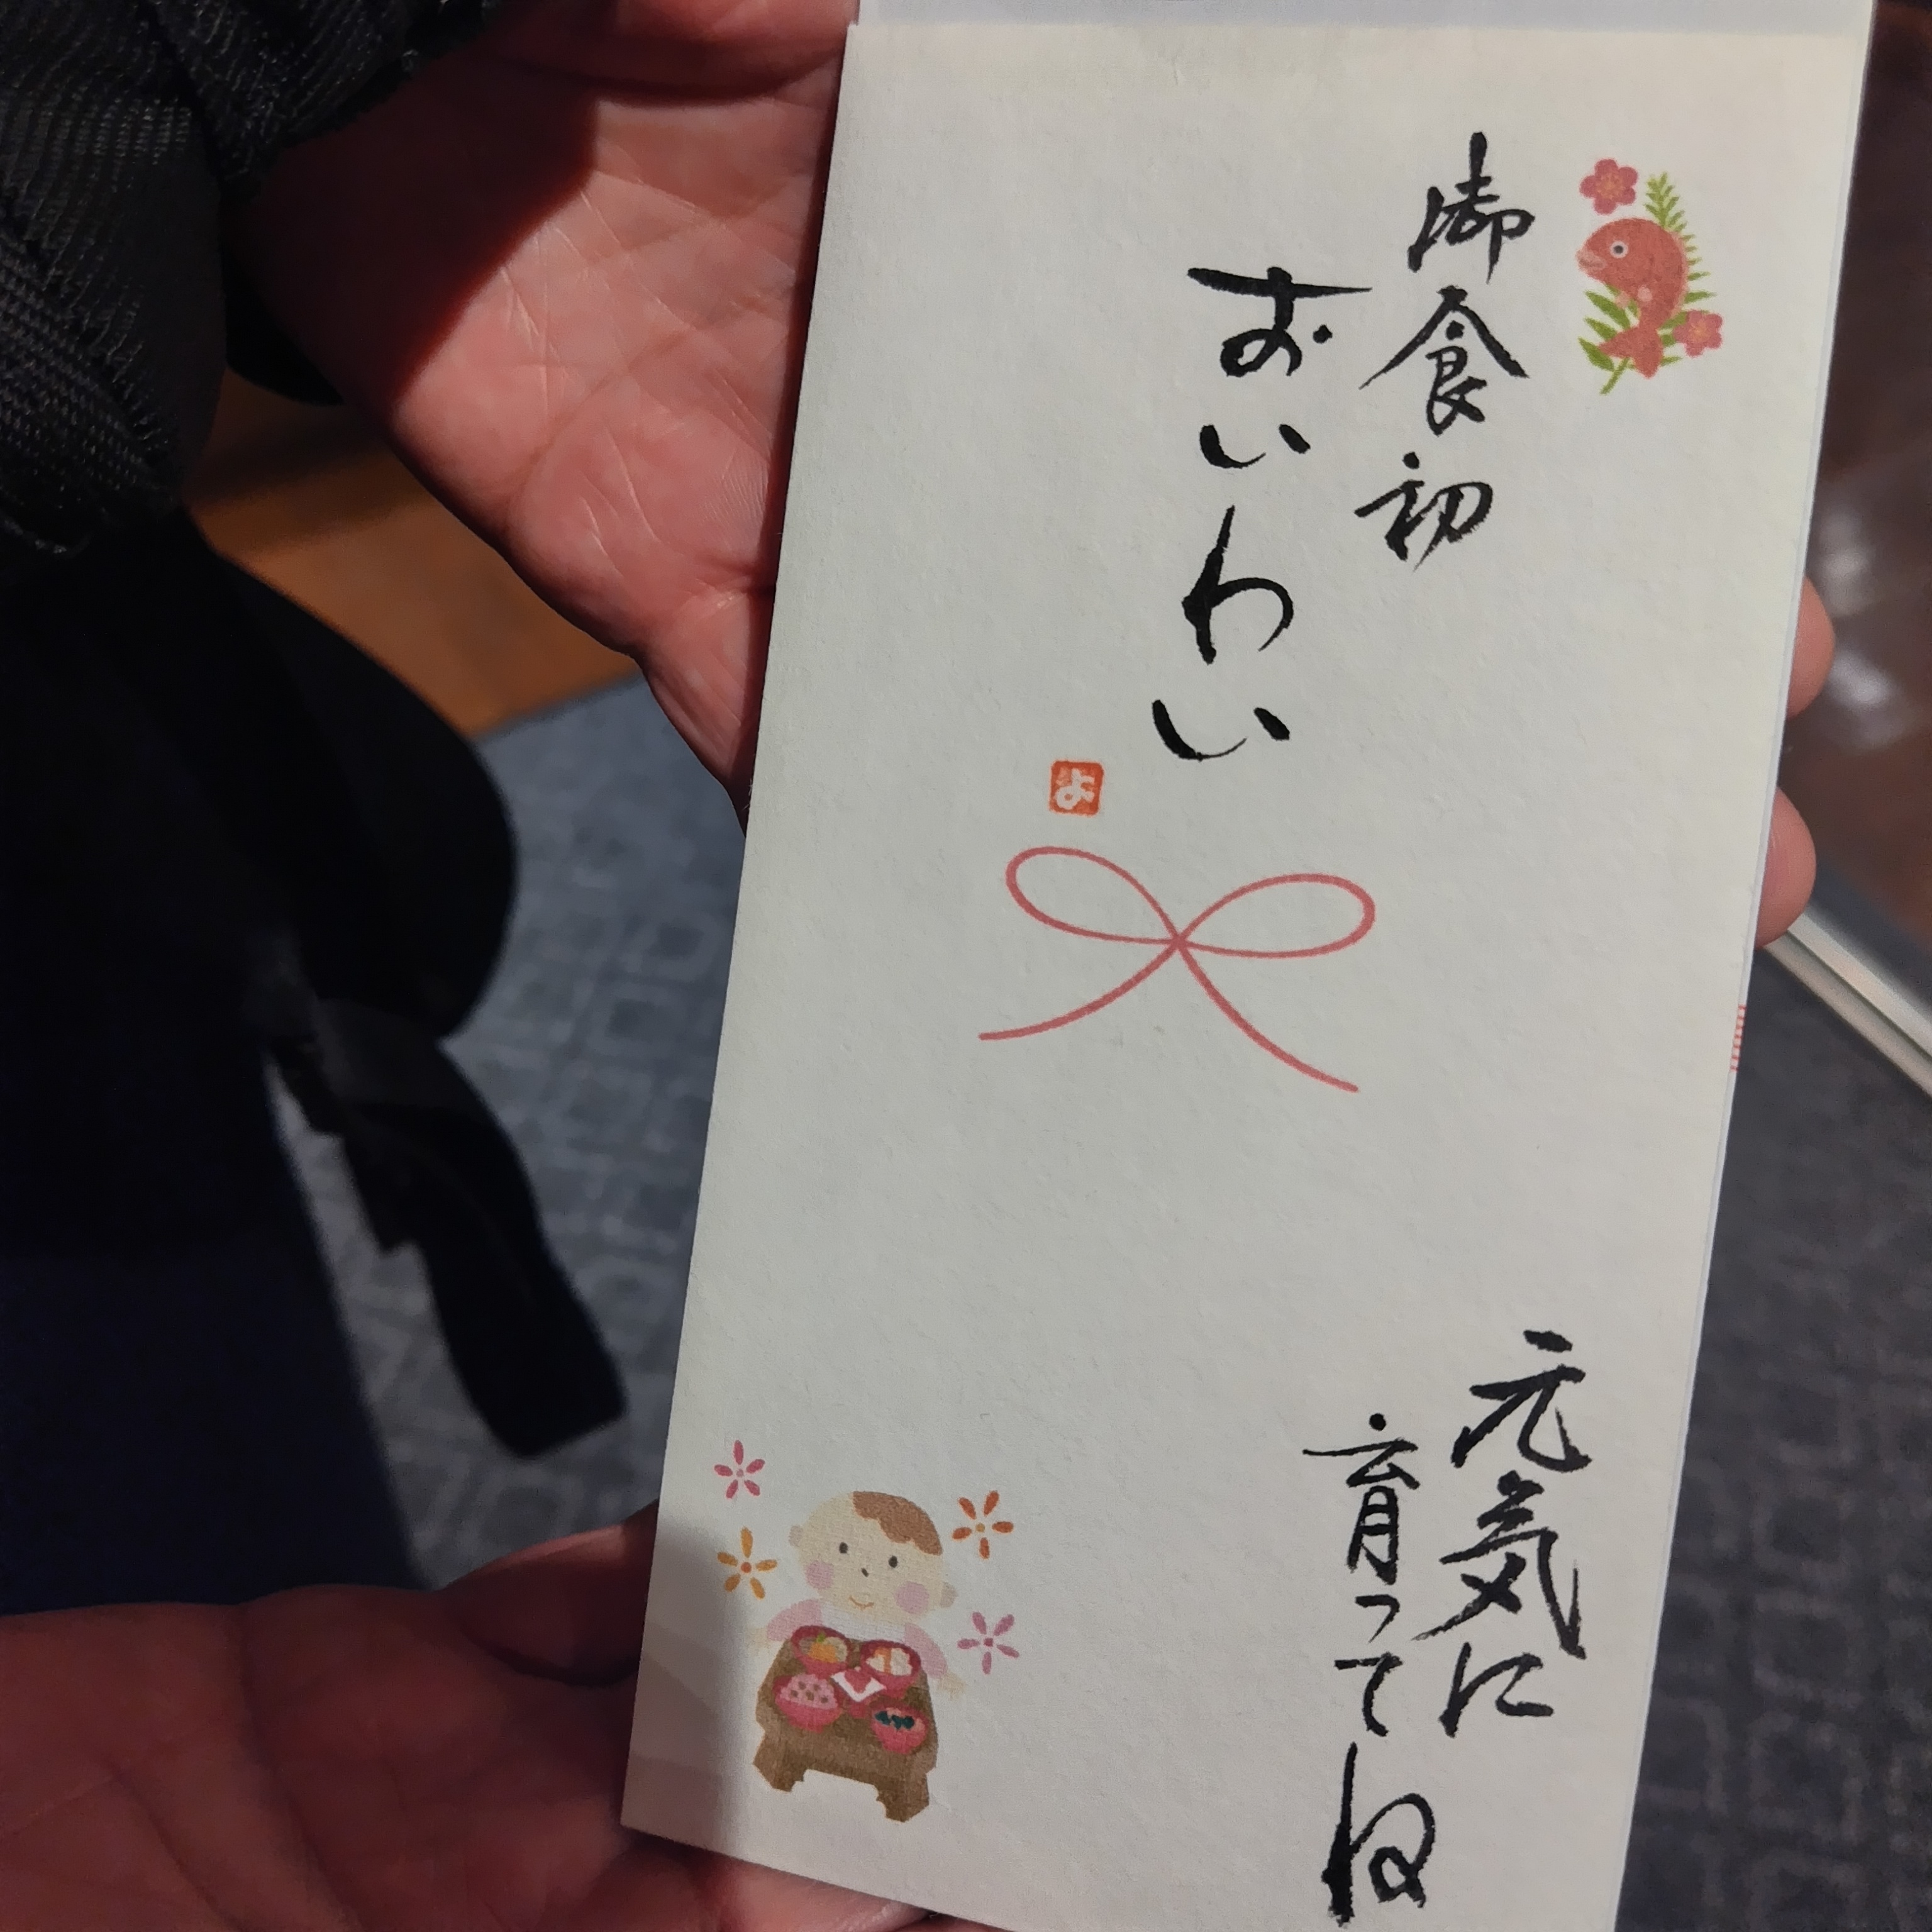 御食初
おいわい
よ
元気に
育ってね